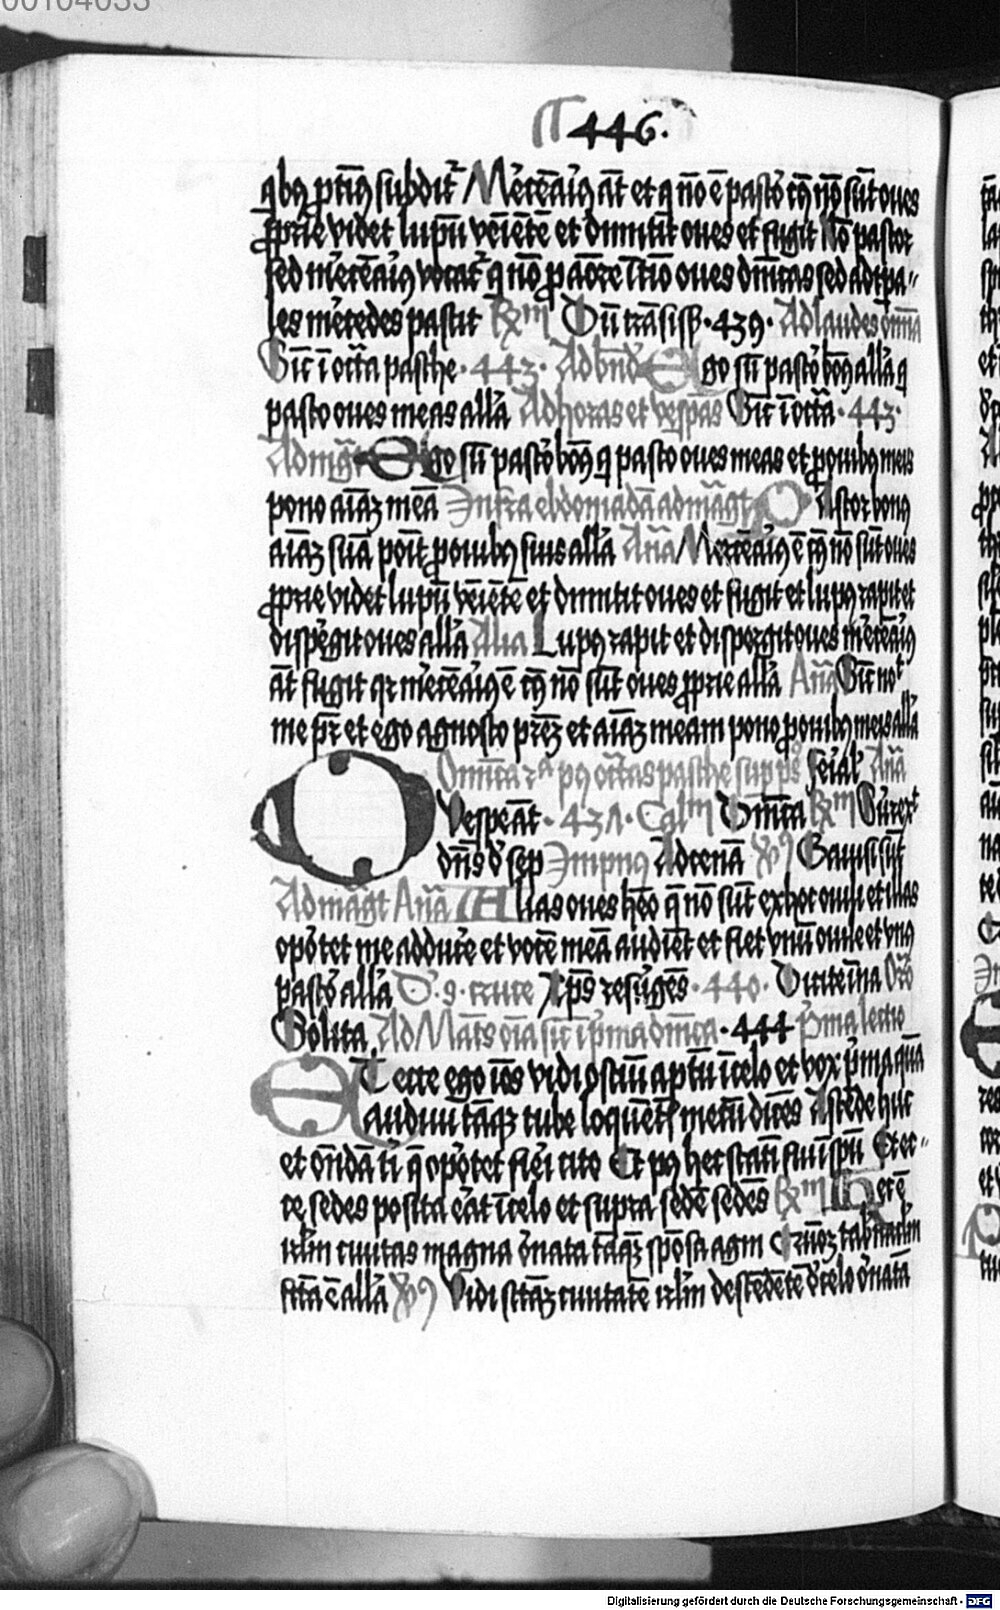 00104033
446.
qbꝫ ptiꝫ subdit᷑ Mercẽaiꝫ aũt et q nõ ẽ pastor cuiꝫ nõ sũt oues
ꝓprie videt lupũ veniẽtẽ et dimittit oues et fugit Nõ pastor
sed mercẽaiꝫ vocat᷑ qͥ nõ ꝓ amore oues dñicas sed ad tꝑa-
les mercedes pascit Rm̃ Dũ trãsisꝫ · 439 · Ad laudes omĩa
Sic̃ ĩ octa pasche · 443 · Ad bñd Ego sũ pastor bonꝫ alla q
pasco oues meas alla Ad horas et vesꝑas Sic̃ ĩ octa · 443 ·
Ad mgt Ego sũ pastor bonꝫ q pasco oues meas et ꝓ ouibꝫ meis
pono aĩaꝫ meã Infra ebdomadã ad magt Pastor bonus
aĩaꝫ suã ponit ꝓ ouibꝫ suis alla Aña Mercẽaiꝫ ẽ cuiꝫ nõ sũt oues
ꝓprie videt lupũ veniẽtẽ et dimittit oues et fugit et lupꝫ rapit et
disꝑgit oues alla Alia Lupꝫ rapit et dispergit oues mercẽaiꝫ
aũt fugit qꝛ mercẽaiꝫ ẽ cuiꝫ nõ sũt oues ꝓprie alla Aña Sic̃ nouit
me pr̃ et ego agnosco prẽꝫ et aĩaꝫ meam pono ꝓ ouibꝫ meis alla
Dominica 2ᵃ pꝰ octas pasche supp̃s ferial᷑ Aña
Vesꝑe añt · 431 · Cplm̃ Dm̃ica Rm̃ Surrexit
dñs d᷑ sep Impnꝫ Ad cenã Vꝰ Gauisi sũt
Ad magt Aña Alias oues heo q̃ nõ sũt ex hoc ouili et illas
oportet me adducẽ et vocẽ meã audient et fiet vnũ ouile et vnꝫ
pastor alla D. s. cruce Xp̃s resurgẽs · 440 · Dicite ĩ na Orõ
Solita Ad Mat̃s oĩa sic̃ ĩ pͥma dñica · 444 pͥma lectio
ET ecce ego ioẽs vidi ostiũ aptũ ĩ celo et vox pͥma quã
audiui tãꝗꝫ tube loquẽtꝭ mecũ dicẽs Ascẽde huc
et ondã ti q̃ oportet fieri cito Et pꝰ hec statĩ fui ĩ spũ Et ec-
ce sedes posita erat ĩ celo et supra sedẽ sedẽs Rm̃ Hec ẽ
irlm̃ ciuitas magna ornata tãꝗꝫ sponsa agni Qm̃ tabnaclm̃
fcta ẽ alla Vꝰ Vidi sctãꝫ ciuitatẽ irlm̃ descẽdẽtẽ d᷑ celo ornatã
Digitalisierung gefördert durch die Deutsche Forschungsgemeinschaft - DFG